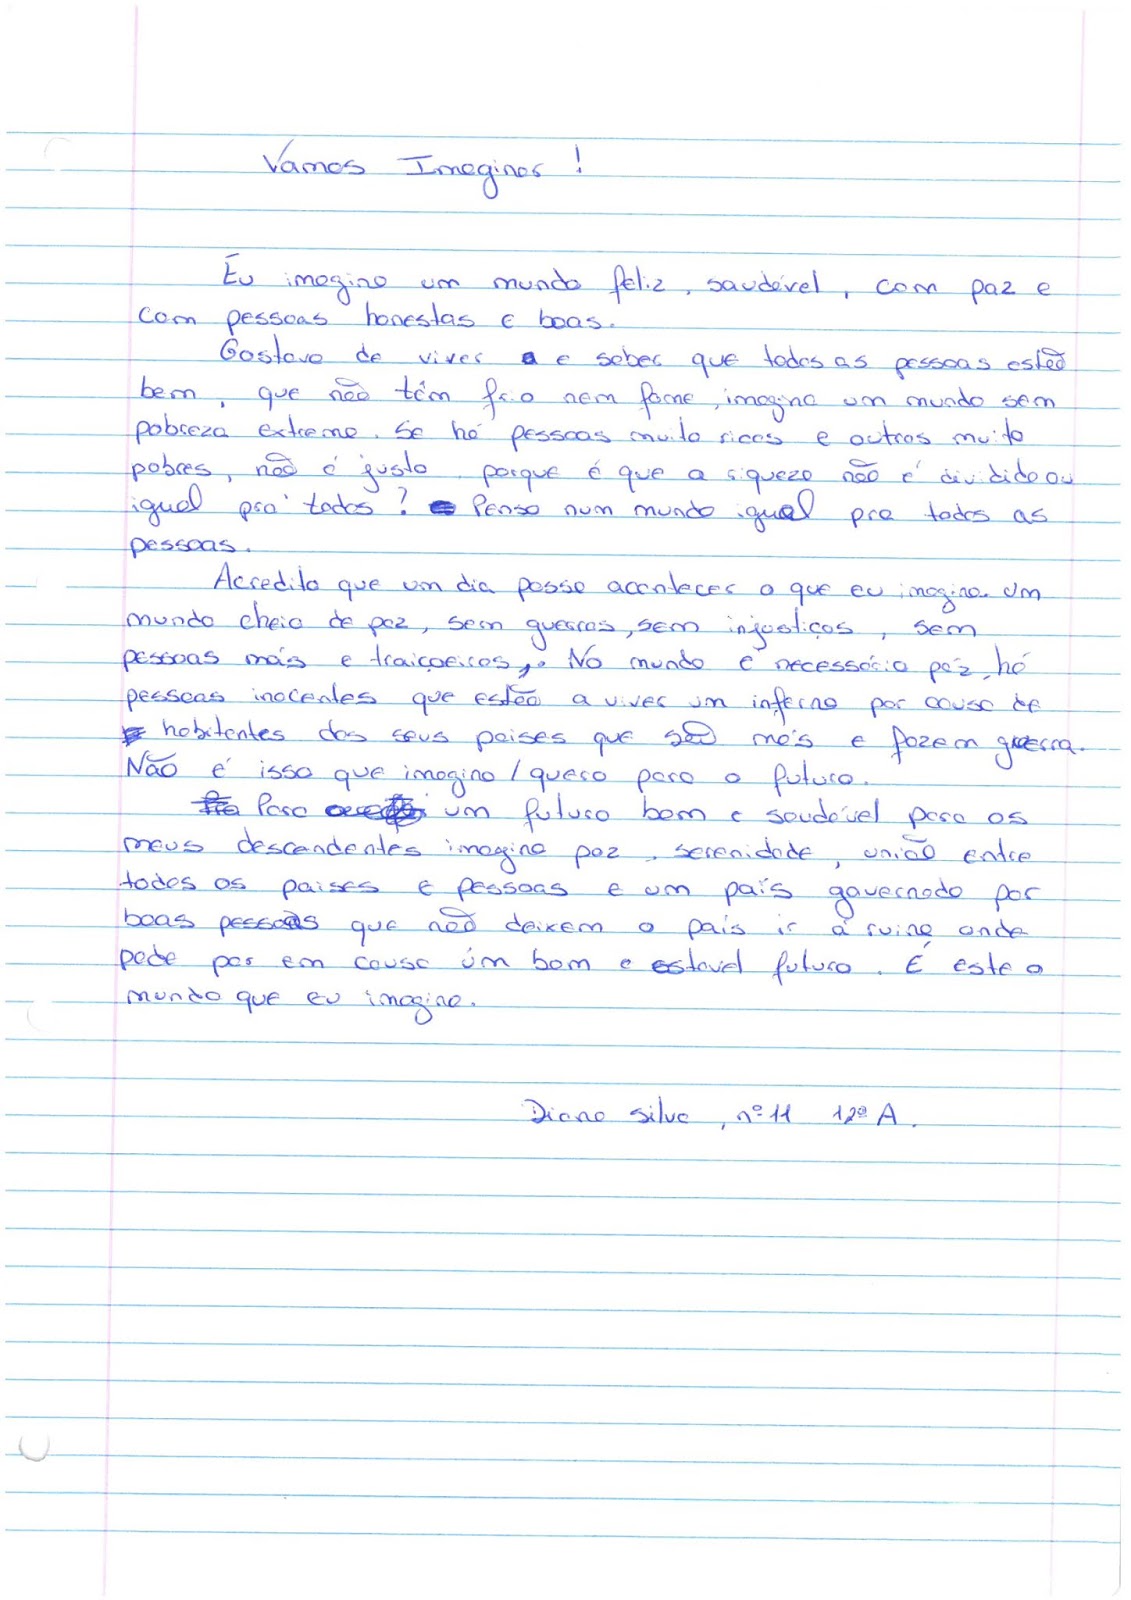 Vamos Imaginar !
Eu imagino um mundo feliz, saudável, com paz e
com pessoas honestas e boas.
Gostava de viver e saber que todas as pessoas estão
bem, que não têm frio nem fome, imagino um mundo sem
pobreza extrema. Se há pessoas muito ricas e outras muito
pobres, não é justo, porque é que a riqueza não é dividida ou
igual pra todos ? Penso num mundo igual pra todas as
pessoas.
Acredito que um dia possa acontecer o que eu imagino. Um
mundo cheio de paz, sem guerras, sem injostiças, sem
pessoas más e traiçoeiras. No mundo é necessário paz, há
pessoas inocentes que estão a viver um inferno por causa de
habitantes dos seus paises que são más e fazem guerra.
Não é isso que imagino / quero para o futuro.
Para um futuro bom e saudável para os
meus descendentes imagino paz, serenidade, união entre
todos os paises e pessoas e um país governado por
boas pessoas que não deixem o país ir à ruina onde
pode por em causa um bom e estavel futuro. É este o
mundo que eu imagino.
Diana Silva, nº 11 12º A.